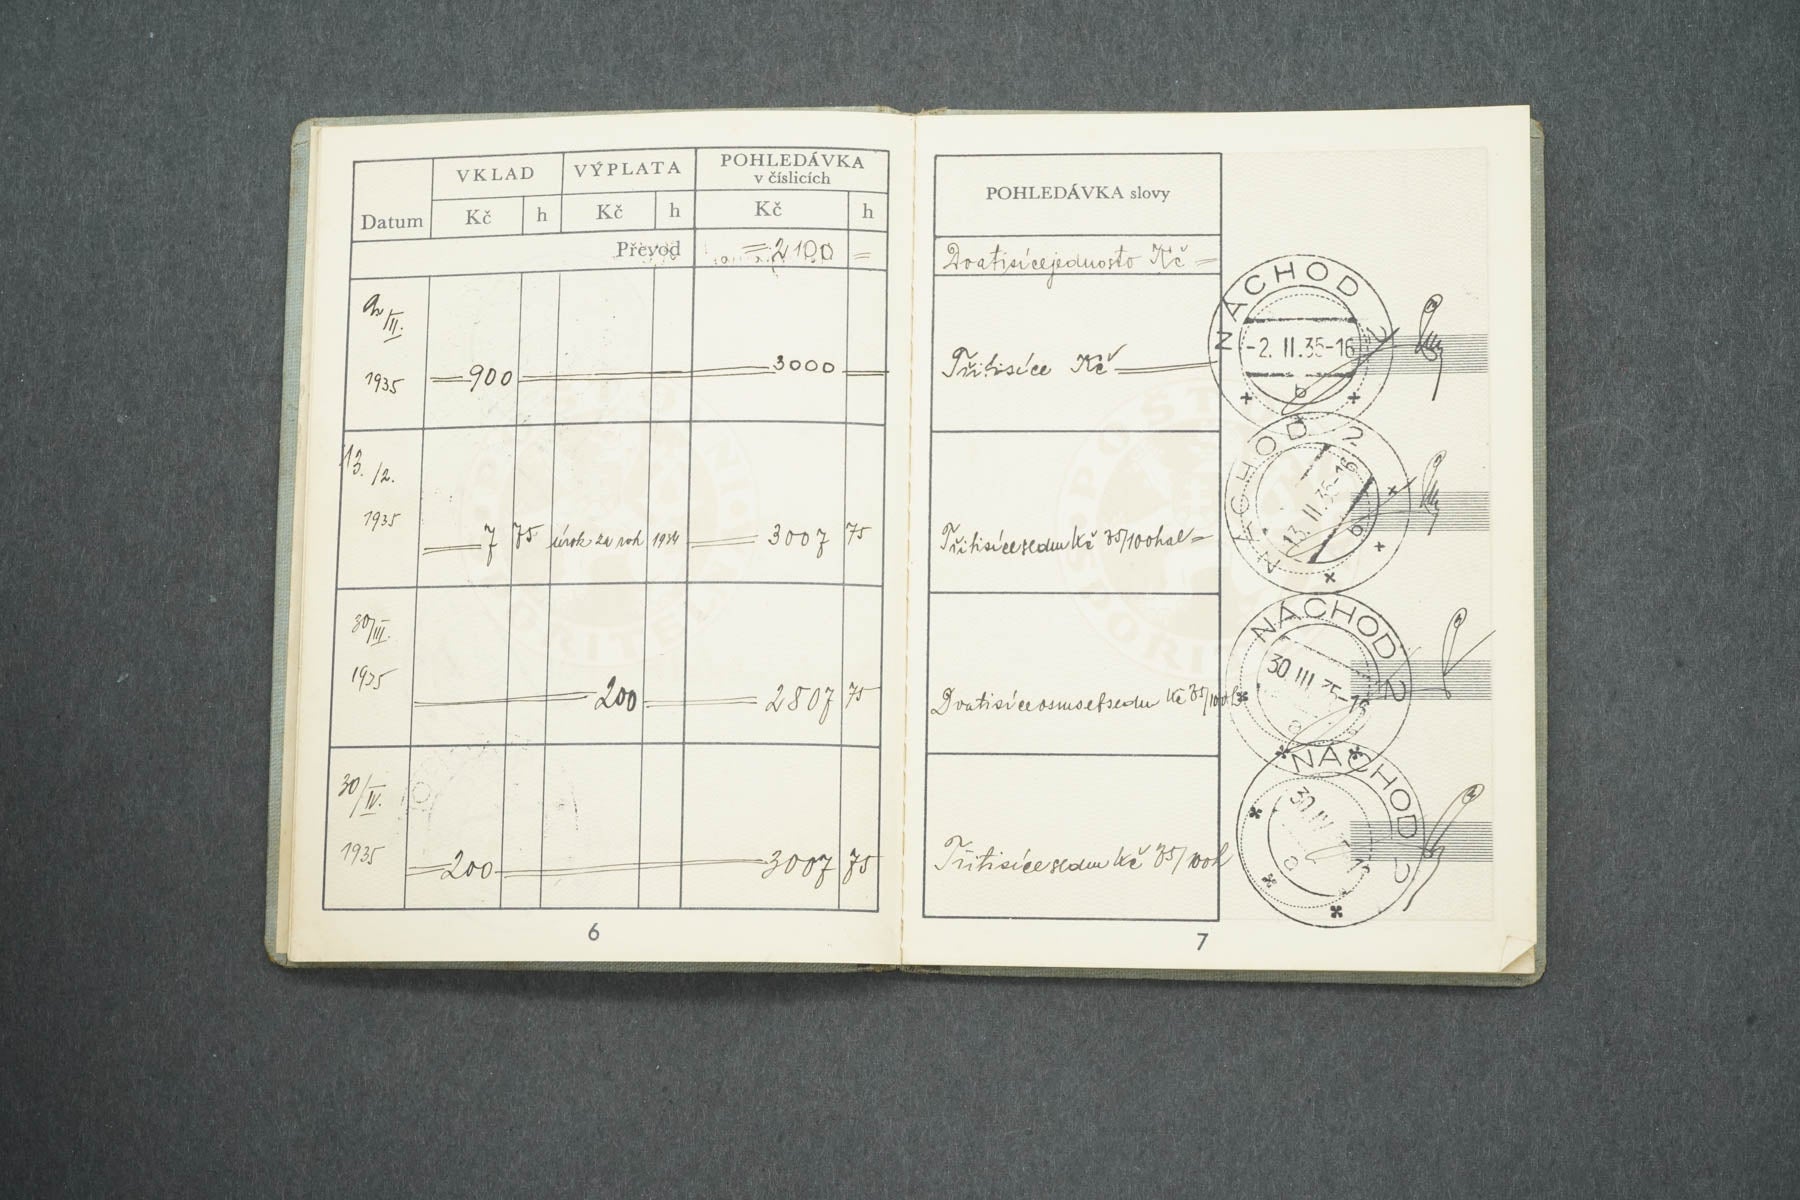 VKLAD VÝPLATA POHLEDÁVKA
v číslicích
Datum Kč h Kč h Kč h
Převod =2100 =
2/II.
1935 900 3000
13./2.
1935 7 75 úrok za rok 1934 3007 75
30/III.
1935 200 2807 75
30/IV.
1935 200 3007 75
6
POHLEDÁVKA slovy
Dvatisícejednosto Kč =
Třitisíce Kč
Třitisícesedm Kč 75/100hal =
Dvatisíceosmsetsedm Kč 75/100h
Třitisícesedm Kč 75/100h
NÁCHOD 2
-2. II. 35-16
b
NÁCHOD 2
13. II. 35-16
b
NÁCHOD 2
30 III 35-16
a
NÁCHOD 2
30 IV
a
7
POŠTOVNÍ SPOŘITELNA